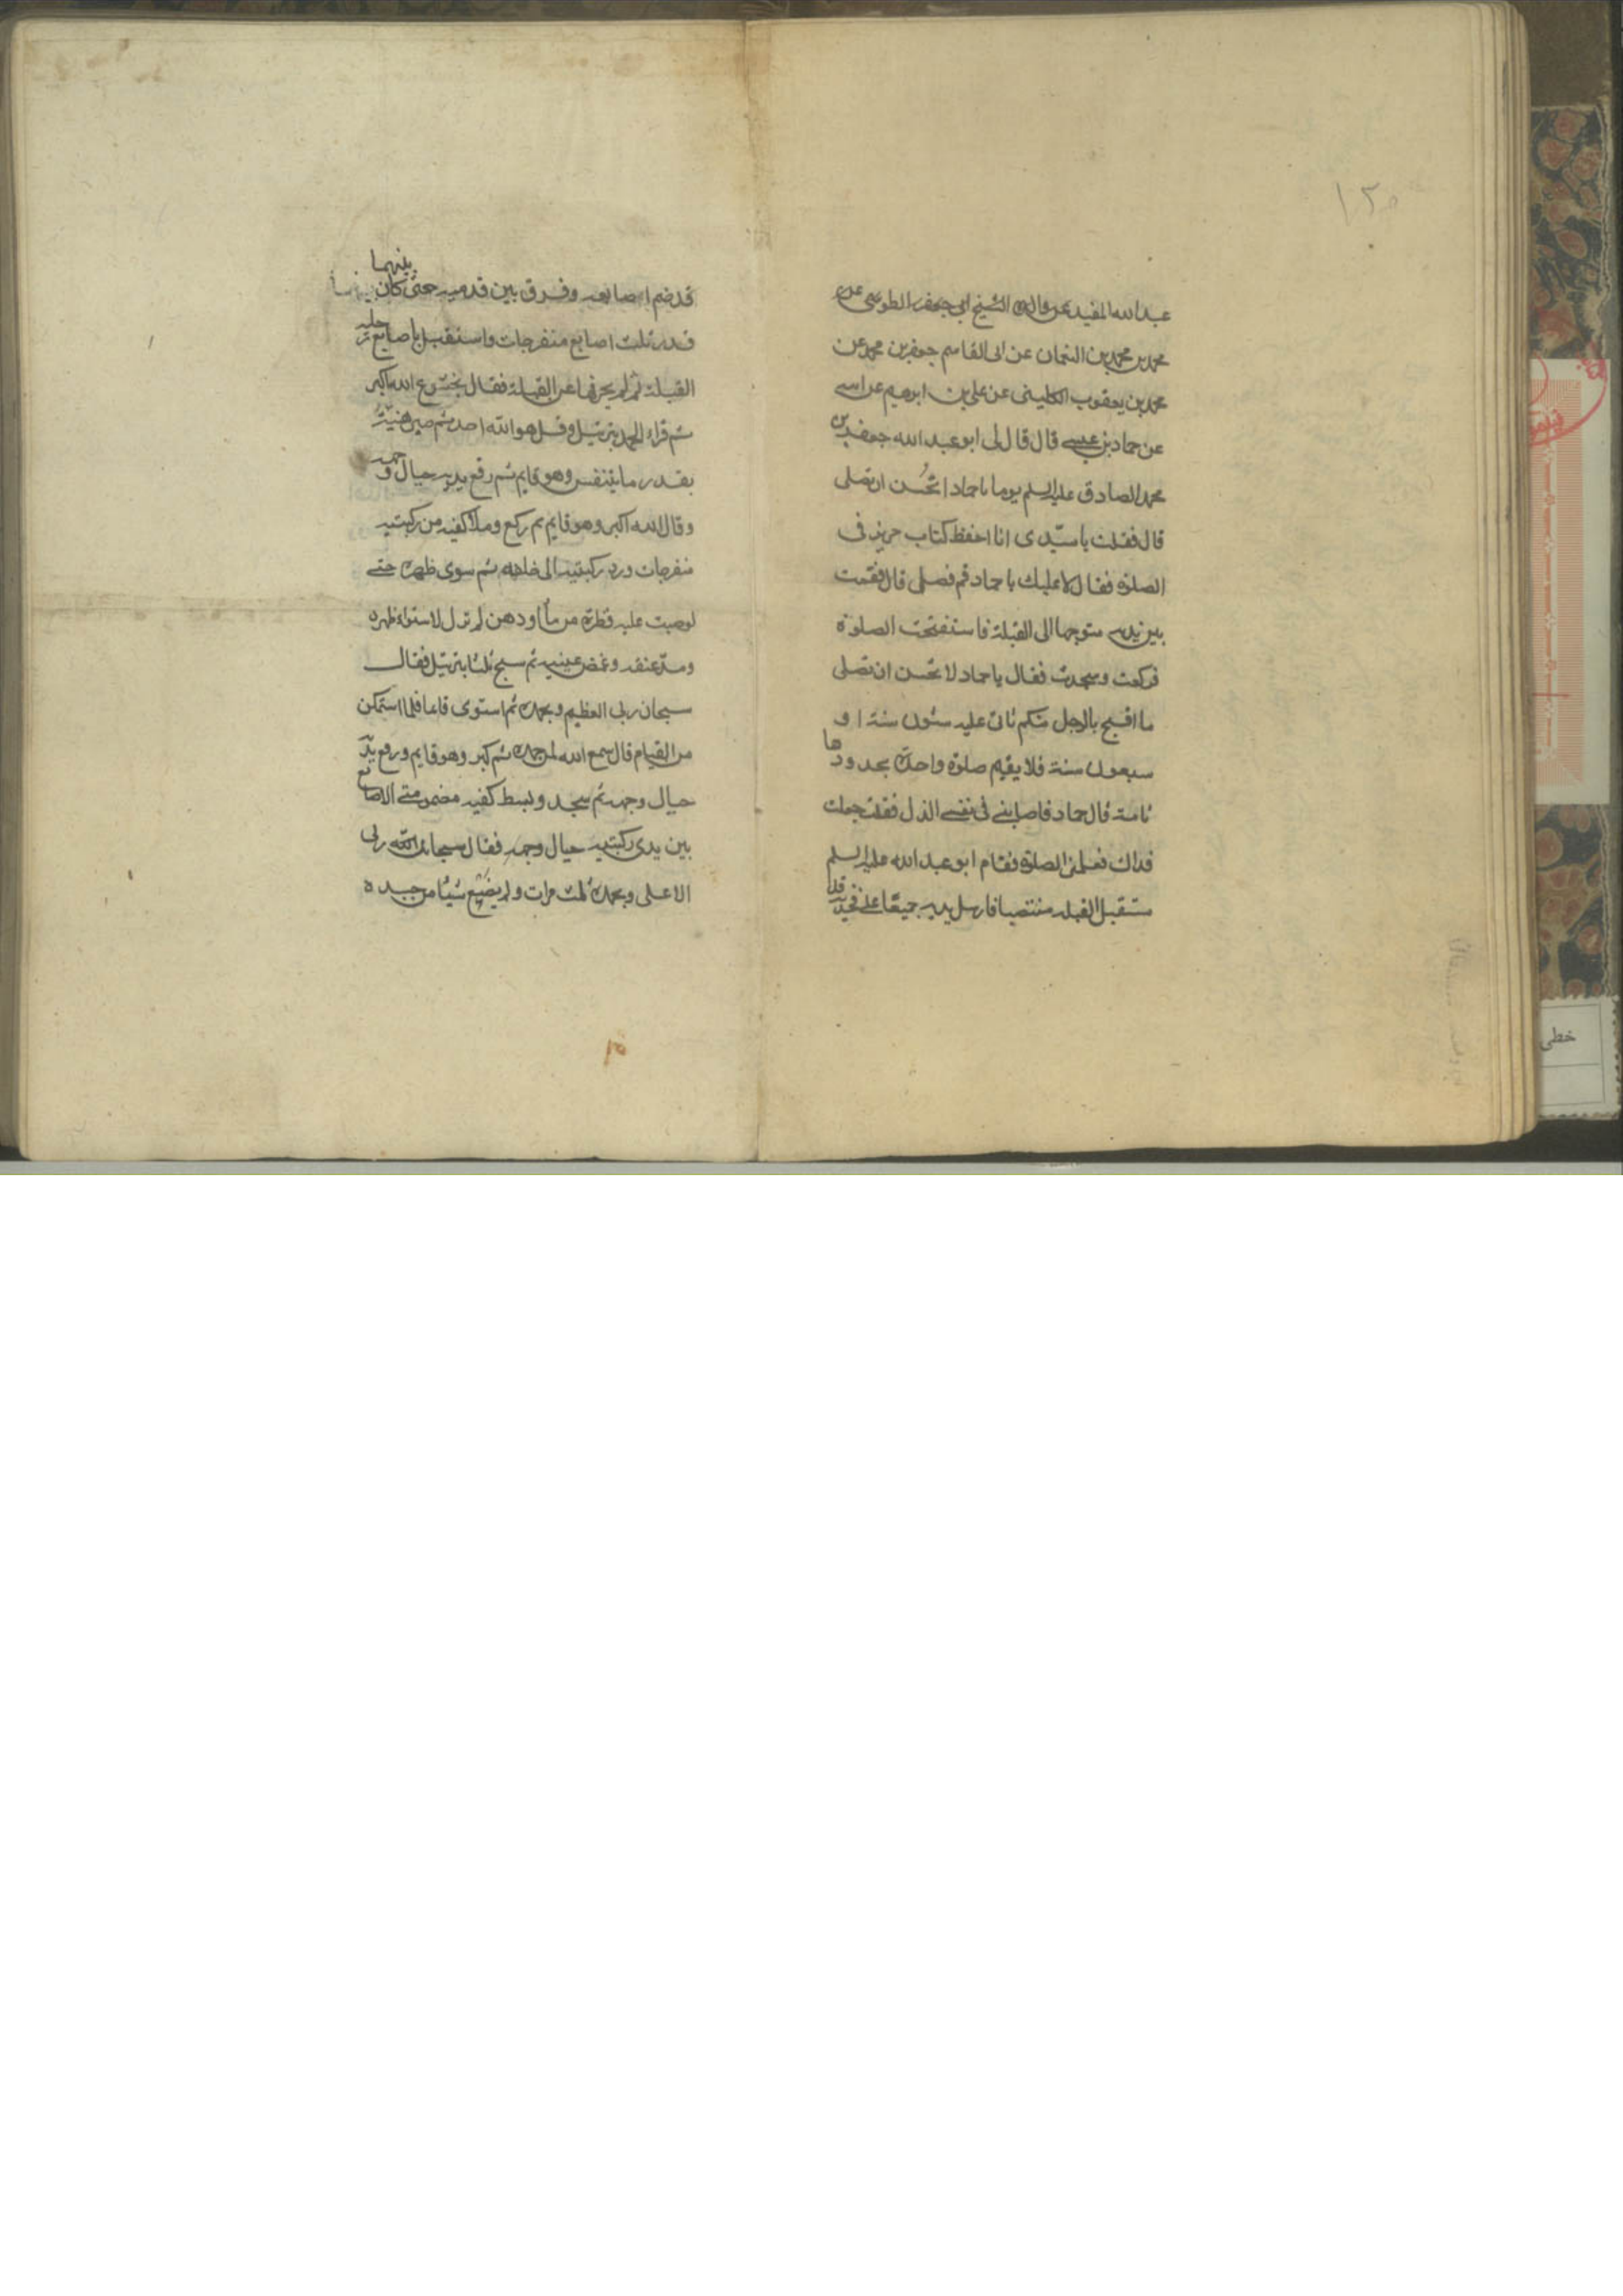 ١٢٥
عبدالله المفيد عن والده الشيخ ابى جعفر الطوسى عن
محمد بن محمد بن النعمان عن ابى القاسم جعفر بن محمد عن
محمد بن يعقوب الكلينى عن على بن ابرهيم عن ابيه
عن حماد بن عيسى قال قال لى ابو عبد الله جعفر بن
محمد الصادق عليه السلم يوما يا حماد اتحُسن ان تصلى
قال فقلت يا سيّدى انا احفظ كتاب حريز فى
الصلوة فقال لا عليك يا حماد قم فصلى قال فقمت
بين يديه متوجها الى القبلة فاستفتحت الصلوة
فركعت وسجدت فقال يا حماد لا تحسن ان تصلى
ما اقبح بالرجل منكم تاتى عليه ستون سنة او
سبعون سنة فلا يقيم صلوة واحدة بحدودها
تامة قال حماد فاصابنى فى نفسى الذل فقلت جعلت
فداك فعلمنى الصلوة فقام ابو عبد الله عليه السلم
مستقبل القبله منتصبا فارسل يديه جميعًا على فخذيه
قد ضم اصابعه وفرق بين قدميه حتى كان بينهما
قدر ثلث اصابع منفرجات واستقبل باصابع رجليه
القبلة لم يحرفها عن القبلة فقال بخشوع الله اكبر
ثم قراء الحمد بترتيل وقل هو الله احد ثم صبر هنيّةُ
بقدر ما يتنفس وهو قايم ثم رفع يديه حيال وجهه
وقال الله اكبر وهو قايم ثم ركع وملأ كفيه من ركبتيه
منفرجات ورد ركبتيه الى خلفه ثم سوى ظهره حتى
لو صبت عليه قطرة من ماء او دهن لم تزل لاستواء ظهره
ومدّ عنقه وغمض عينيه ثم سبح ثلثا بترتيل فقال
سبحان ربى العظيم وبحمده ثم استوى قايما فلما استمكن
من القيام قال سمع الله لمن حمده ثم كبر وهو قايم ورفع يديه
حيال وجهه ثم سجد وبسط كفيه مضمومتى الاصابع
بين يدى ركبتيه حيال وجهه فقال سبحان ربى
الاعلى وبحمده ثلث مرات ولم يضع شيئا من جسده
خطى